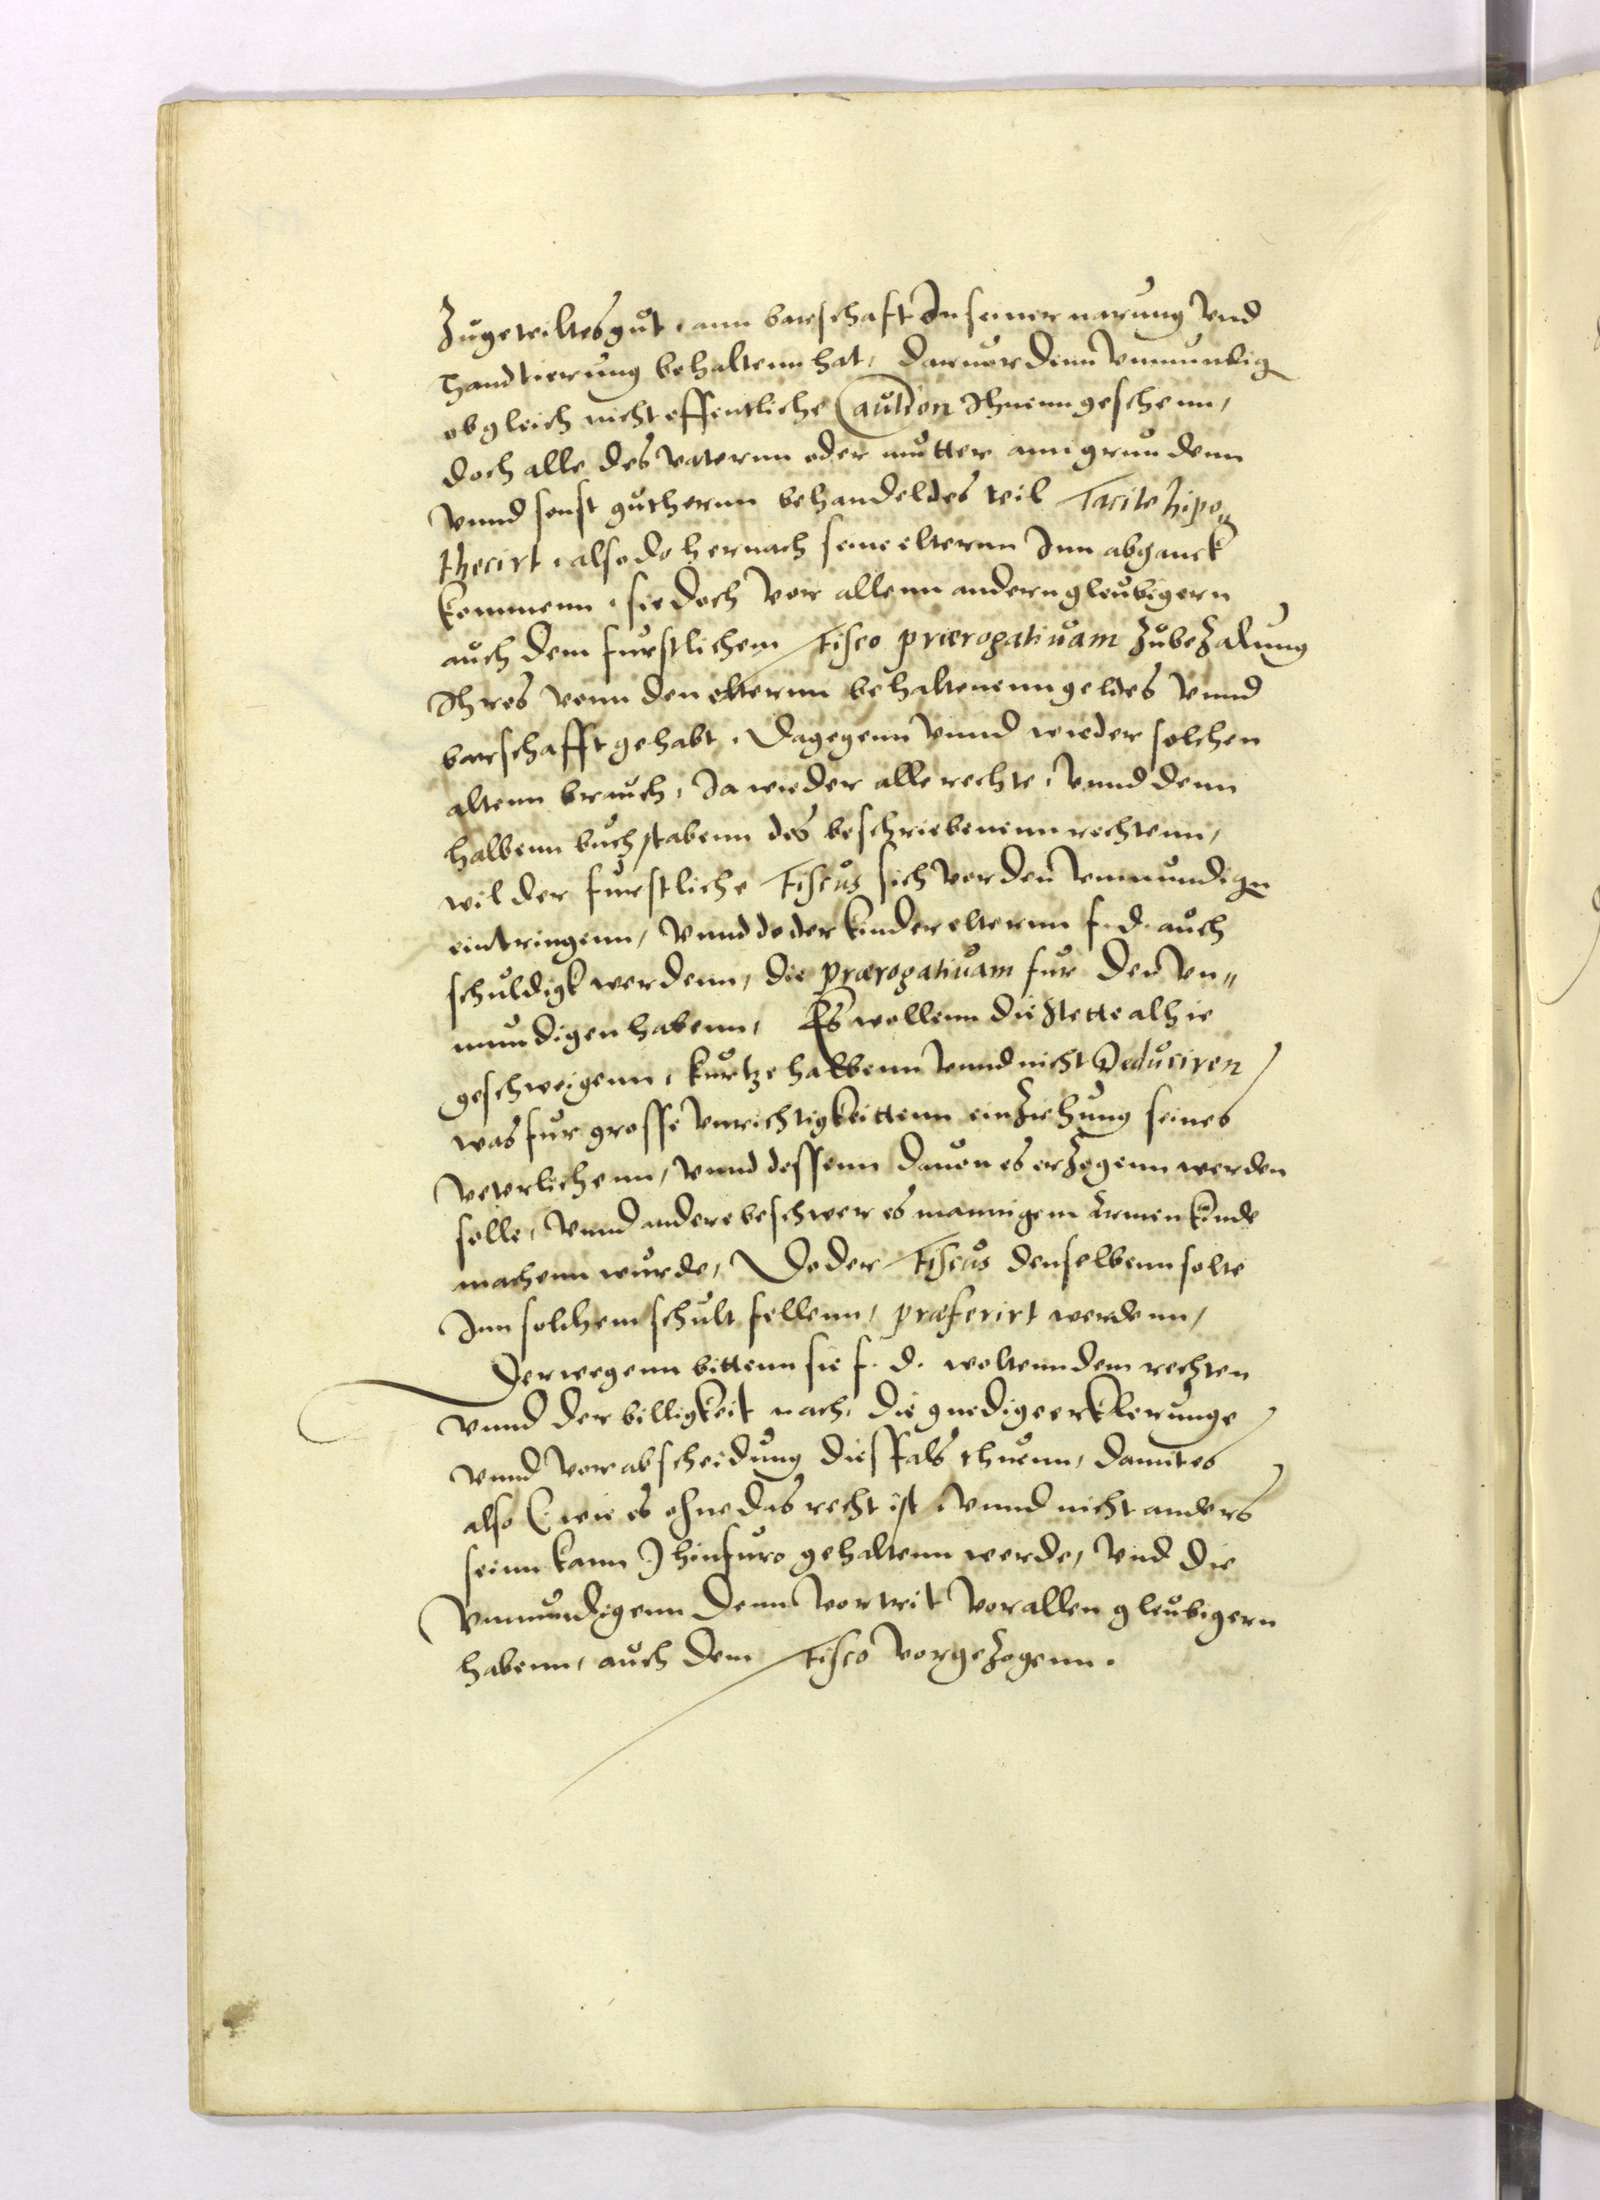 Zugeteiltes gut, ann barschaft In seiner narung vnd
Handtierung behaltenn hat, daruor denn vnmundig
ob gleich nicht offentliche Caution Ihnenn geschenn,
doch alle des vaternn oder mutter ann grundenn
vnnd sonst guthernn behandeldes teil Tacite hipo„
thecirt, also do hernach seine elternn Inn abganck
kommenn, sie doch vor allenn andern gleubigern
auch dem furstlichem Fisco prærogatiuam zu bezalung
Ihres vonn den elternn behaltenenn geldes vnnd
barschafft gehabt. Dagegenn vnnd wieder solchen
altenn brauch, Ja wieder alle rechte, vnnd denn
halbenn buchstabenn des beschriebenenn rechtenn,
wil der furstliche Fiscus sich vor den vnmundign
eintringenn, vnnd do der kinder elternn f. d. auch
schuldigk werdenn, die prærogatiuam fur den vn„
mundigen habenn, Es wollenn die stette alhie
geschweigenn, kurtze halbenn vnnd nicht Deduciren
was fur grosse vnrichtigkeittenn einziehung seines
veterlichenn, vnnd dessenn dauon es erzogenn werden
solle, vnnd andere beschwer es mannigem armen kinde
machenn wurde, Do der Fiscus denselbenn solte
Inn solchem schult fellenn, præferirt werdenn,
Derwegenn bittenn sie f. d. woltenn dem rechten
vnnd der billigkeit nach, die gnedige erklerunge
vnnd vorabscheidung diesfals thuenn, damit es
also (: wie es ohne das recht ist, vnnd nicht anders
seinn kann :) hinfuro gehaltenn werde, vnd die
vnmundigenn denn vortrit vor allen gleubigern
habenn, auch dem Fisco vorgezogenn.